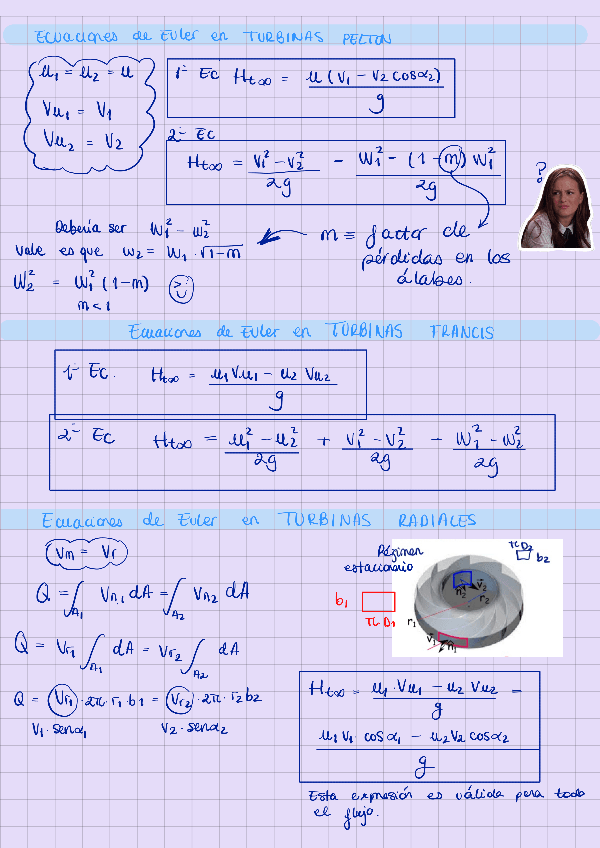 Ecuaciones de Euler en TURBINAS PELTON
u₁ = u₂ = u
Vu₁ = V₁
Vu₂ = V₂
1ª Ec Ht∞ = u (V₁ - V₂ cosα₂) / g
2ª Ec
Ht∞ = (V₁² - V₂²) / 2g - (W₁² - (1-m) W₁²) / 2g
?
Debería ser W₁² - W₂²
vale es que W₂ = W₁ · √(1-m)
W₂² = W₁² (1-m)
m < 1
m ≡ factor de
pérdidas en los
álabes.
Ecuaciones de Euler en TURBINAS FRANCIS
1ª Ec. Ht∞ = (u₁Vu₁ - u₂ Vu₂) / g
2ª Ec Ht∞ = (u₁² - u₂²) / 2g + (V₁² - V₂²) / 2g - (W₁² - W₂²) / 2g
Ecuaciones de Euler en TURBINAS RADIALES
Vm = Vr
Régimen
estacionario
π D₂
b₂
b₁
π D₁
r₁
r₂
V₂
n₂
V₁
n₁
Q = ∫A₁ VA₁ dA = ∫A₂ VA₂ dA
Q = Vr₁ ∫A₁ dA = Vr₂ ∫A₂ dA
Q = Vr₁ · 2π · r₁ · b₁ = Vr₂ · 2π · r₂ b₂
V₁ · senα₁ V₂ · senα₂
Ht∞ = (u₁ · Vu₁ - u₂ Vu₂) / g =
(u₁ V₁ cosα₁ - u₂V₂ cosα₂) / g
Esta expresión es válida para todo
el flujo.